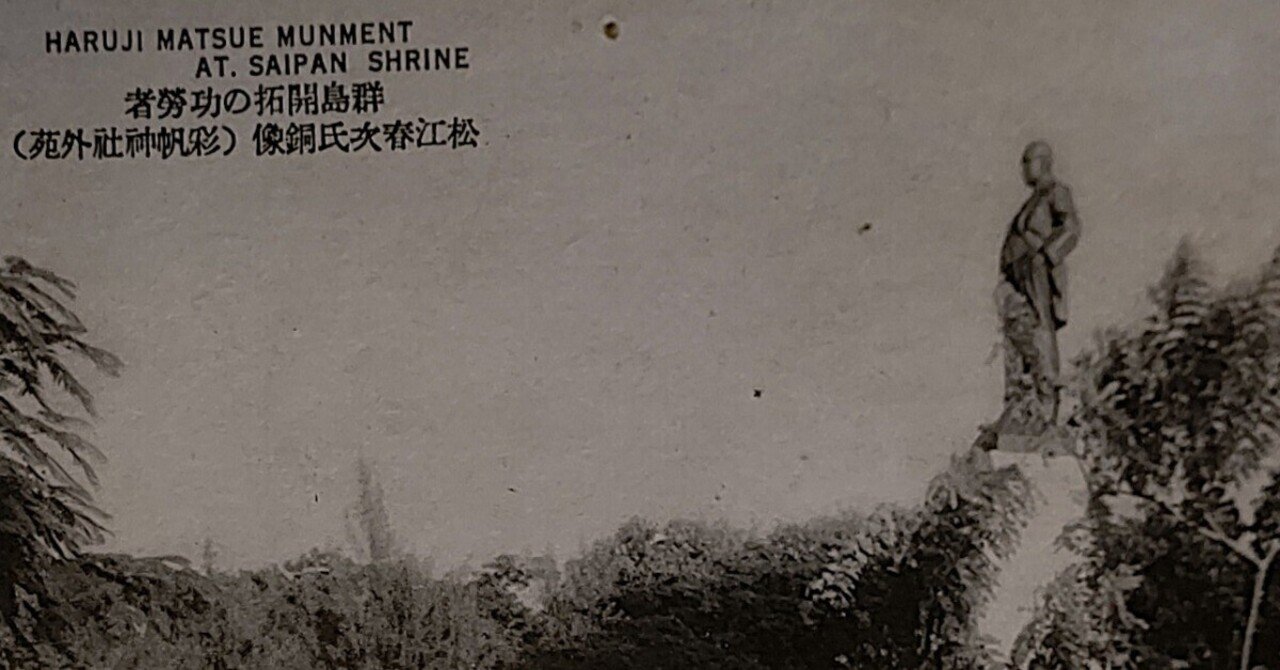 HARUJI MATSUE MUNMENT
AT. SAIPAN SHRINE
群島開拓の功勞者
松江春次氏銅像（彩帆神社外苑）